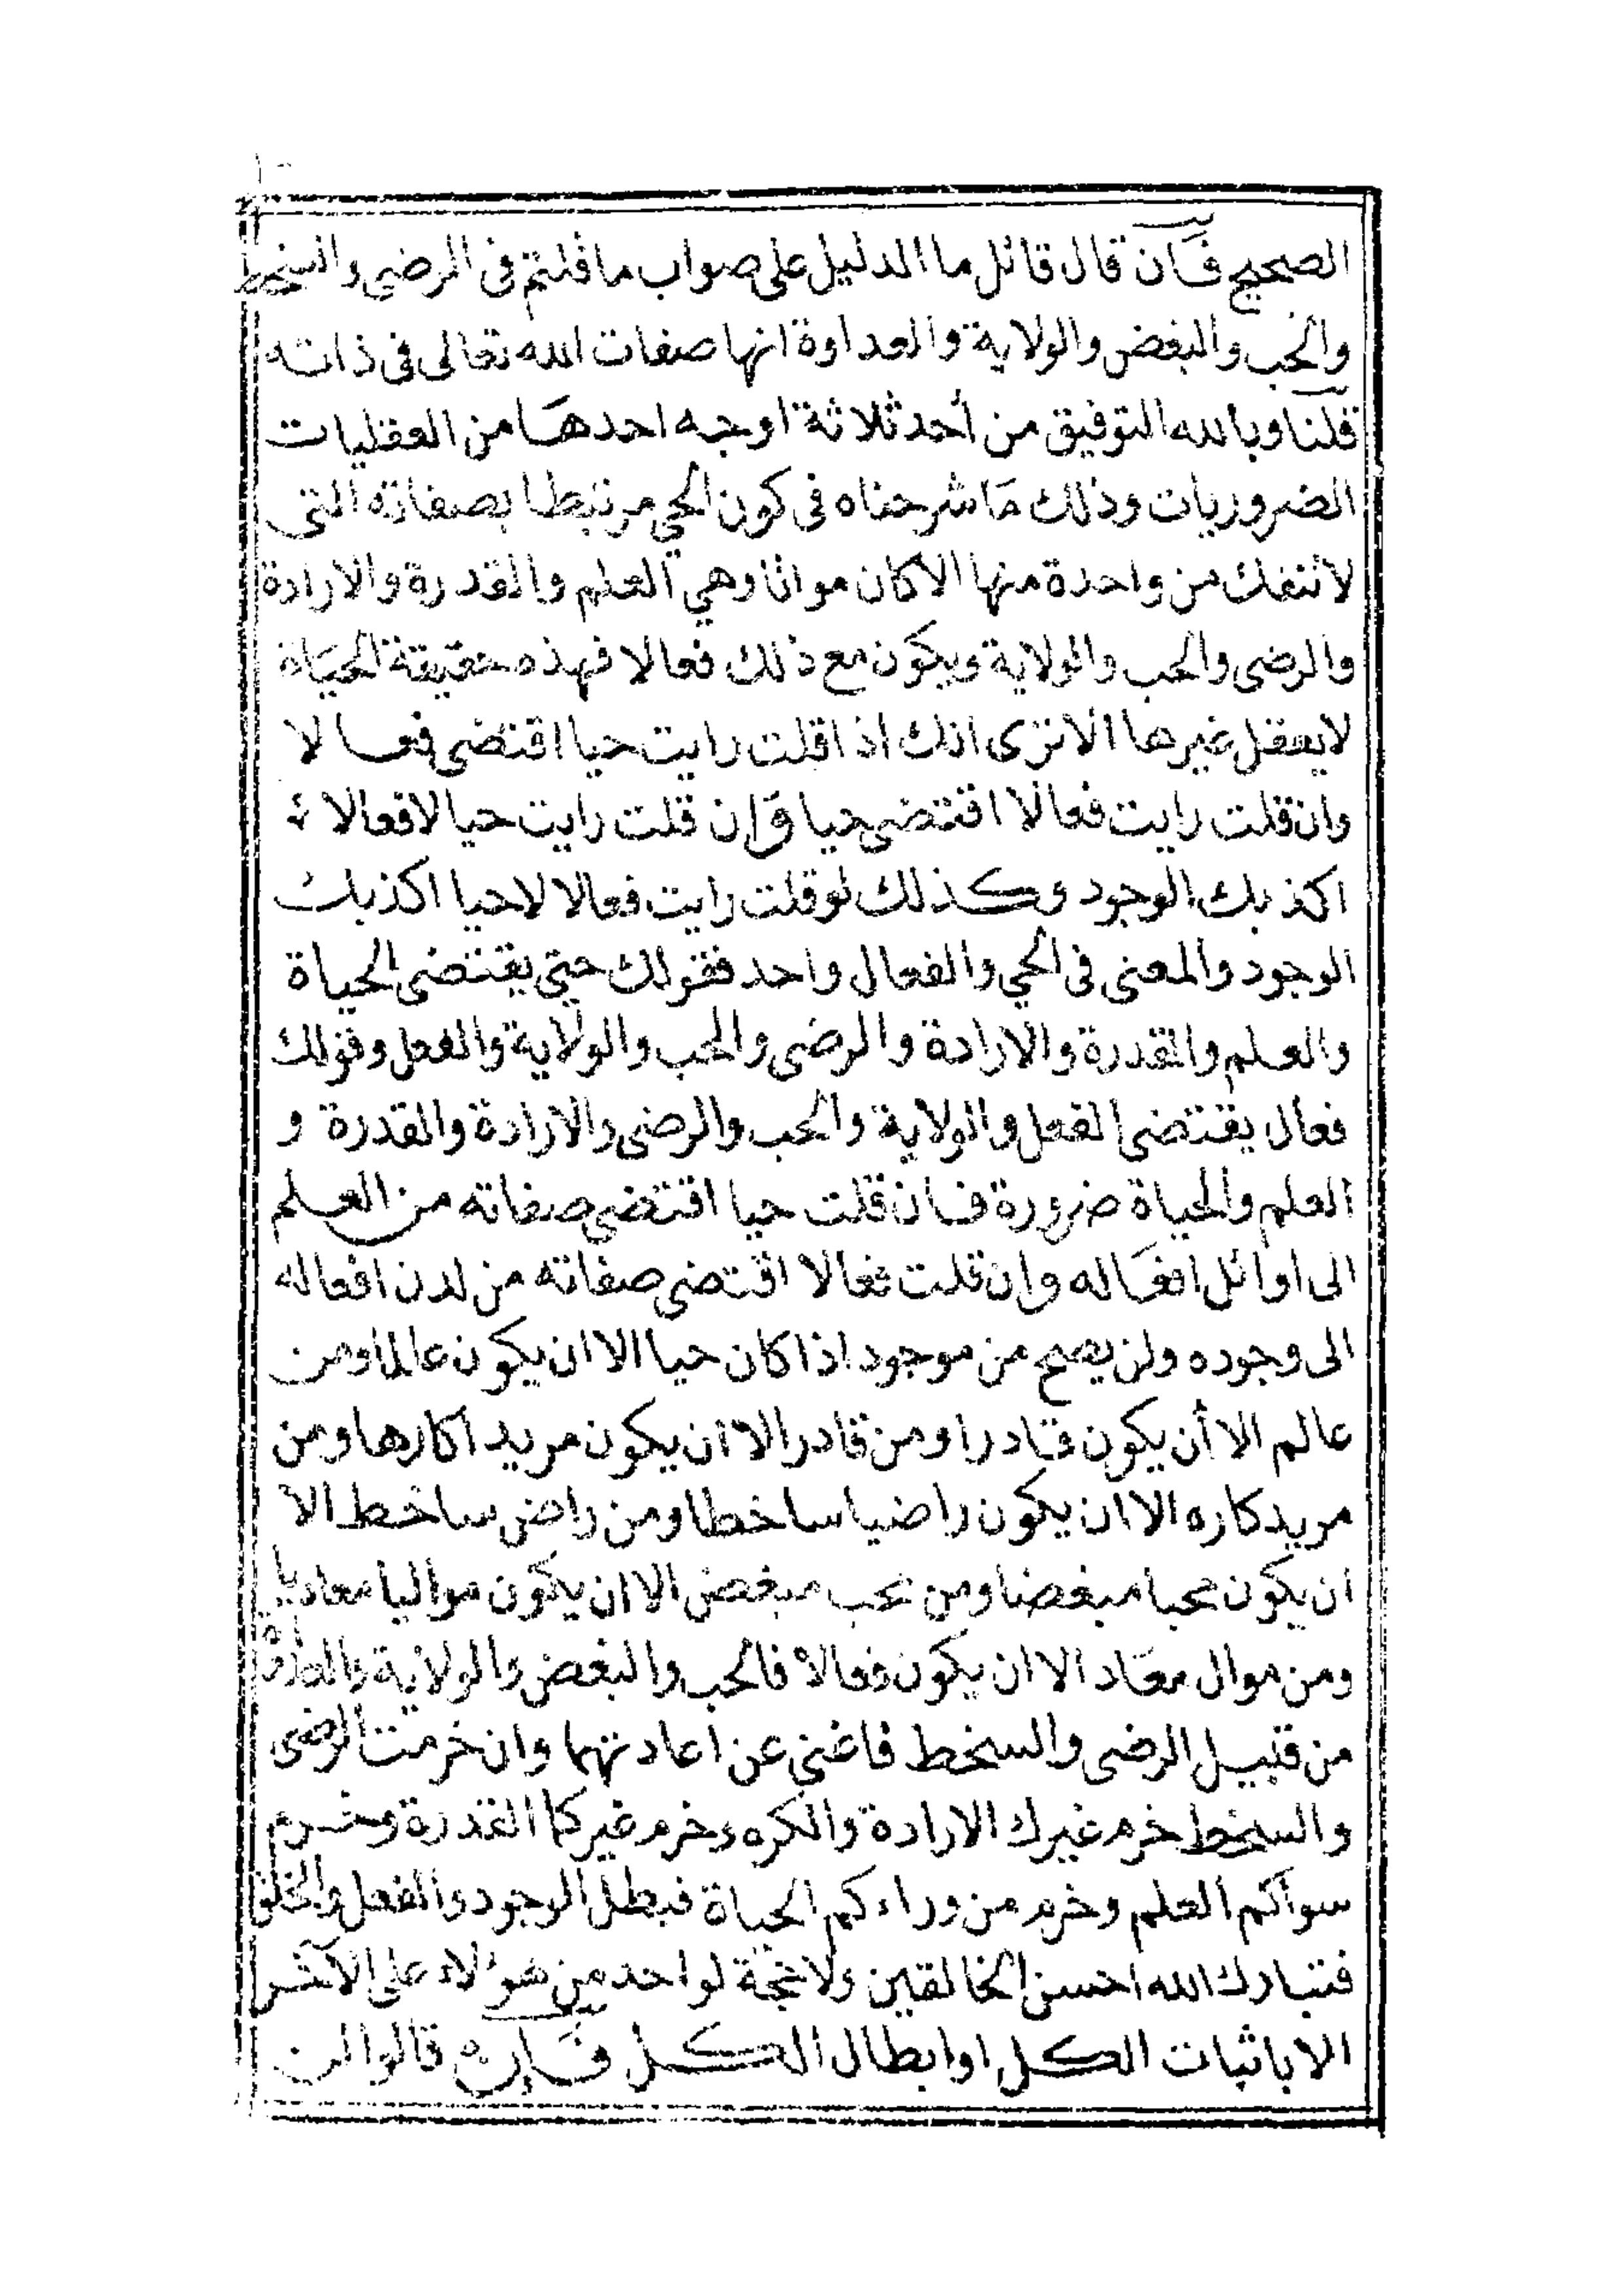 الصحيح فان قال قائل ما الدليل على صواب ما قلتم فى الرضى والسخط
والحب والبغض والولاية والعداوة انها صفات الله تعالى فى ذاته
قلنا وبالله التوفيق من أحد ثلاثة اوجه احدها من العقليات
الضروريات وذلك ما شرحناه فى كون الحي مرتبطا بصفاته التى
لا تنفك من واحدة منها الا كان مواتا وهي العلم والقدرة والارادة
والرضى والحب والولاية ويكون مع ذلك فعالا فهذه حقيقة الحياة
لا يعقل غيرها الا ترى انك اذا قلت رايت حيا اقتضى فعالا
وان قلت رايت فعالا اقتضى حيا وان قلت رايت حيا لا فعالا
اكذبك الوجود وكذلك لو قلت رايت فعالا لا حيا اكذبك
الوجود والمعنى فى الحي والفعال واحد فقولك حتى يقتضى الحياة
والعلم والقدرة والارادة والرضى والحب والولاية والفعل وقولك
فعال يقتضى الفعل والولاية والحب والرضى والارادة والقدرة و
العلم والحياة ضرورة فان قلت حيا اقتضى صفاته من العلم
الى اوائل افعاله وان قلت فعالا اقتضى صفاته من لدن افعاله
الى وجوده ولن يصح من موجود اذا كان حيا الا ان يكون عالما ومن
عالم الا أن يكون قادرا ومن قادر الا ان يكون مريدا كارها ومن
مريد كاره الا ان يكون راضيا ساخطا ومن راض ساخط الا
ان يكون محبا مبغضا ومن محب مبغض الا ان يكون مواليا معاديا
ومن موال معاد الا ان يكون فعالا فالحب والبغض والولاية والعداوة
من قبيل الرضى والسخط فاغنى عن اعادتهما وان خرمت الرضى
والسخط خرم غيرك الارادة والكره وخرم غيركما القدرة وخرم
سواكم العلم وخرم من وراءكم الحياة فبطل الوجود والفعل والخلق
فتبارك الله احسن الخالقين ولا حجة لواحد من هؤلاء على الآخر
الا باثبات الكل او ابطال الكل فان قالوا لن